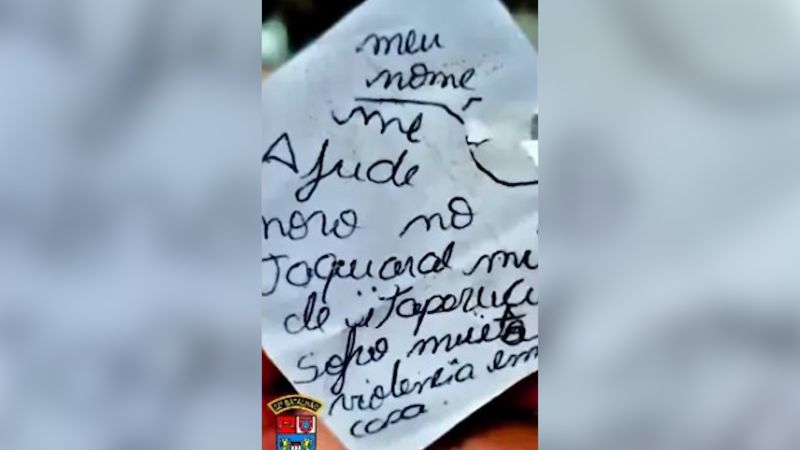 meu
nome
me
Ajude
moro no
Taquaral mu
de iitaperuçu
sofro muito
violencia em
casa.
12º BATALHÃO